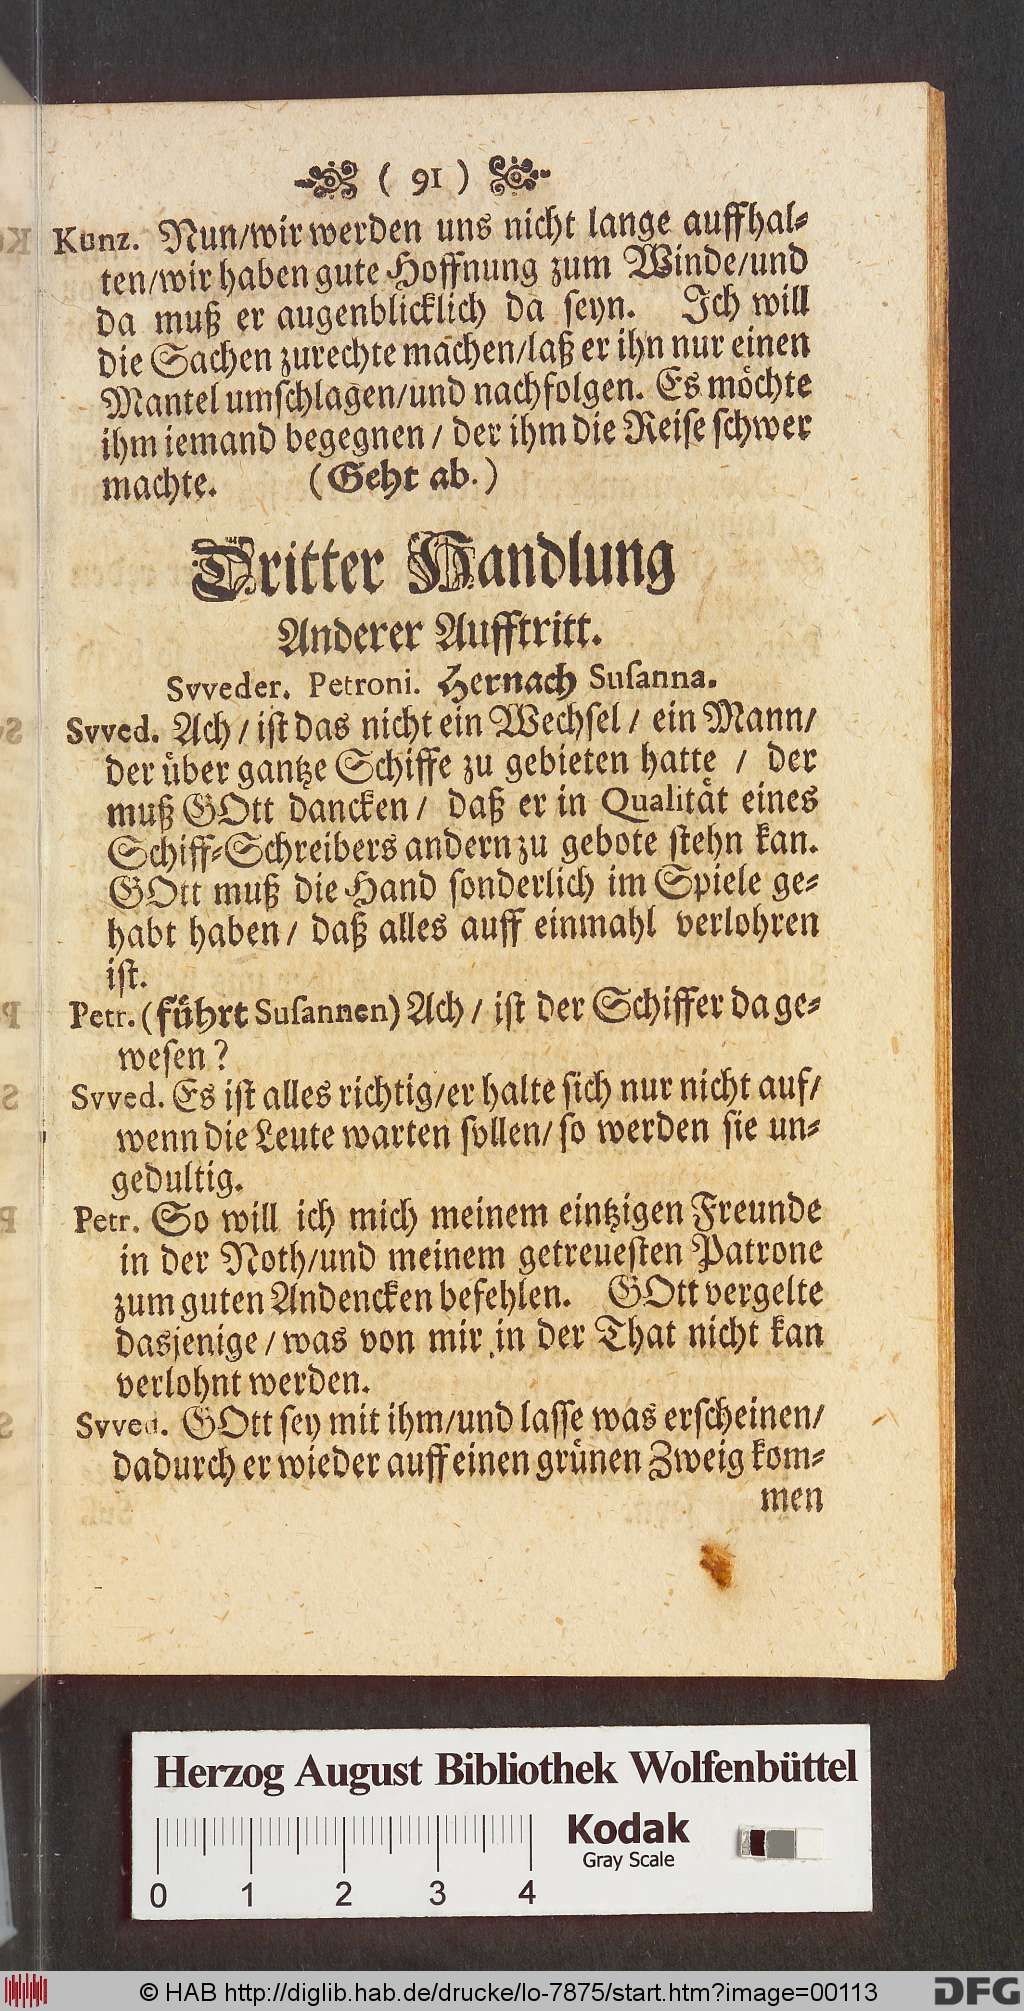 ( 91 )
Kunz. Nun/wir werden uns nicht lange auffhal-
ten/wir haben gute Hoffnung zum Winde/und
da muß er augenblicklich da seyn. Ich will
die Sachen zurechte machen/laß er ihn nur einen
Mantel umschlagen/und nachfolgen. Es möchte
ihm iemand begegnen / der ihm die Reise schwer
machte. (Geht ab.)
Dritter Handlung
Anderer Aufftritt.
Svveder. Petroni. Hernach Susanna.
Svved. Ach / ist das nicht ein Wechsel / ein Mann/
der über gantze Schiffe zu gebieten hatte / der
muß GOtt dancken / daß er in Qualität eines
Schiff-Schreibers andern zu gebote stehn kan.
GOtt muß die Hand sonderlich im Spiele ge-
habt haben / daß alles auff einmahl verlohren
ist.
Petr. (führt Susannen) Ach / ist der Schiffer da ge-
wesen?
Svved. Es ist alles richtig/er halte sich nur nicht auf/
wenn die Leute warten sollen/so werden sie un-
gedultig.
Petr. So will ich mich meinem eintzigen Freunde
in der Noth/und meinem getreuesten Patrone
zum guten Andencken befehlen. GOtt vergelte
dasjenige / was von mir in der That nicht kan
verlohnt werden.
Svved. GOtt sey mit ihm/und lasse was erscheinen/
dadurch er wieder auff einen grünen Zweig kom-
men
Herzog August Bibliothek Wolfenbüttel
Kodak
Gray Scale
0 1 2 3 4
© HAB http://diglib.hab.de/drucke/lo-7875/start.htm?image=00113
DFG